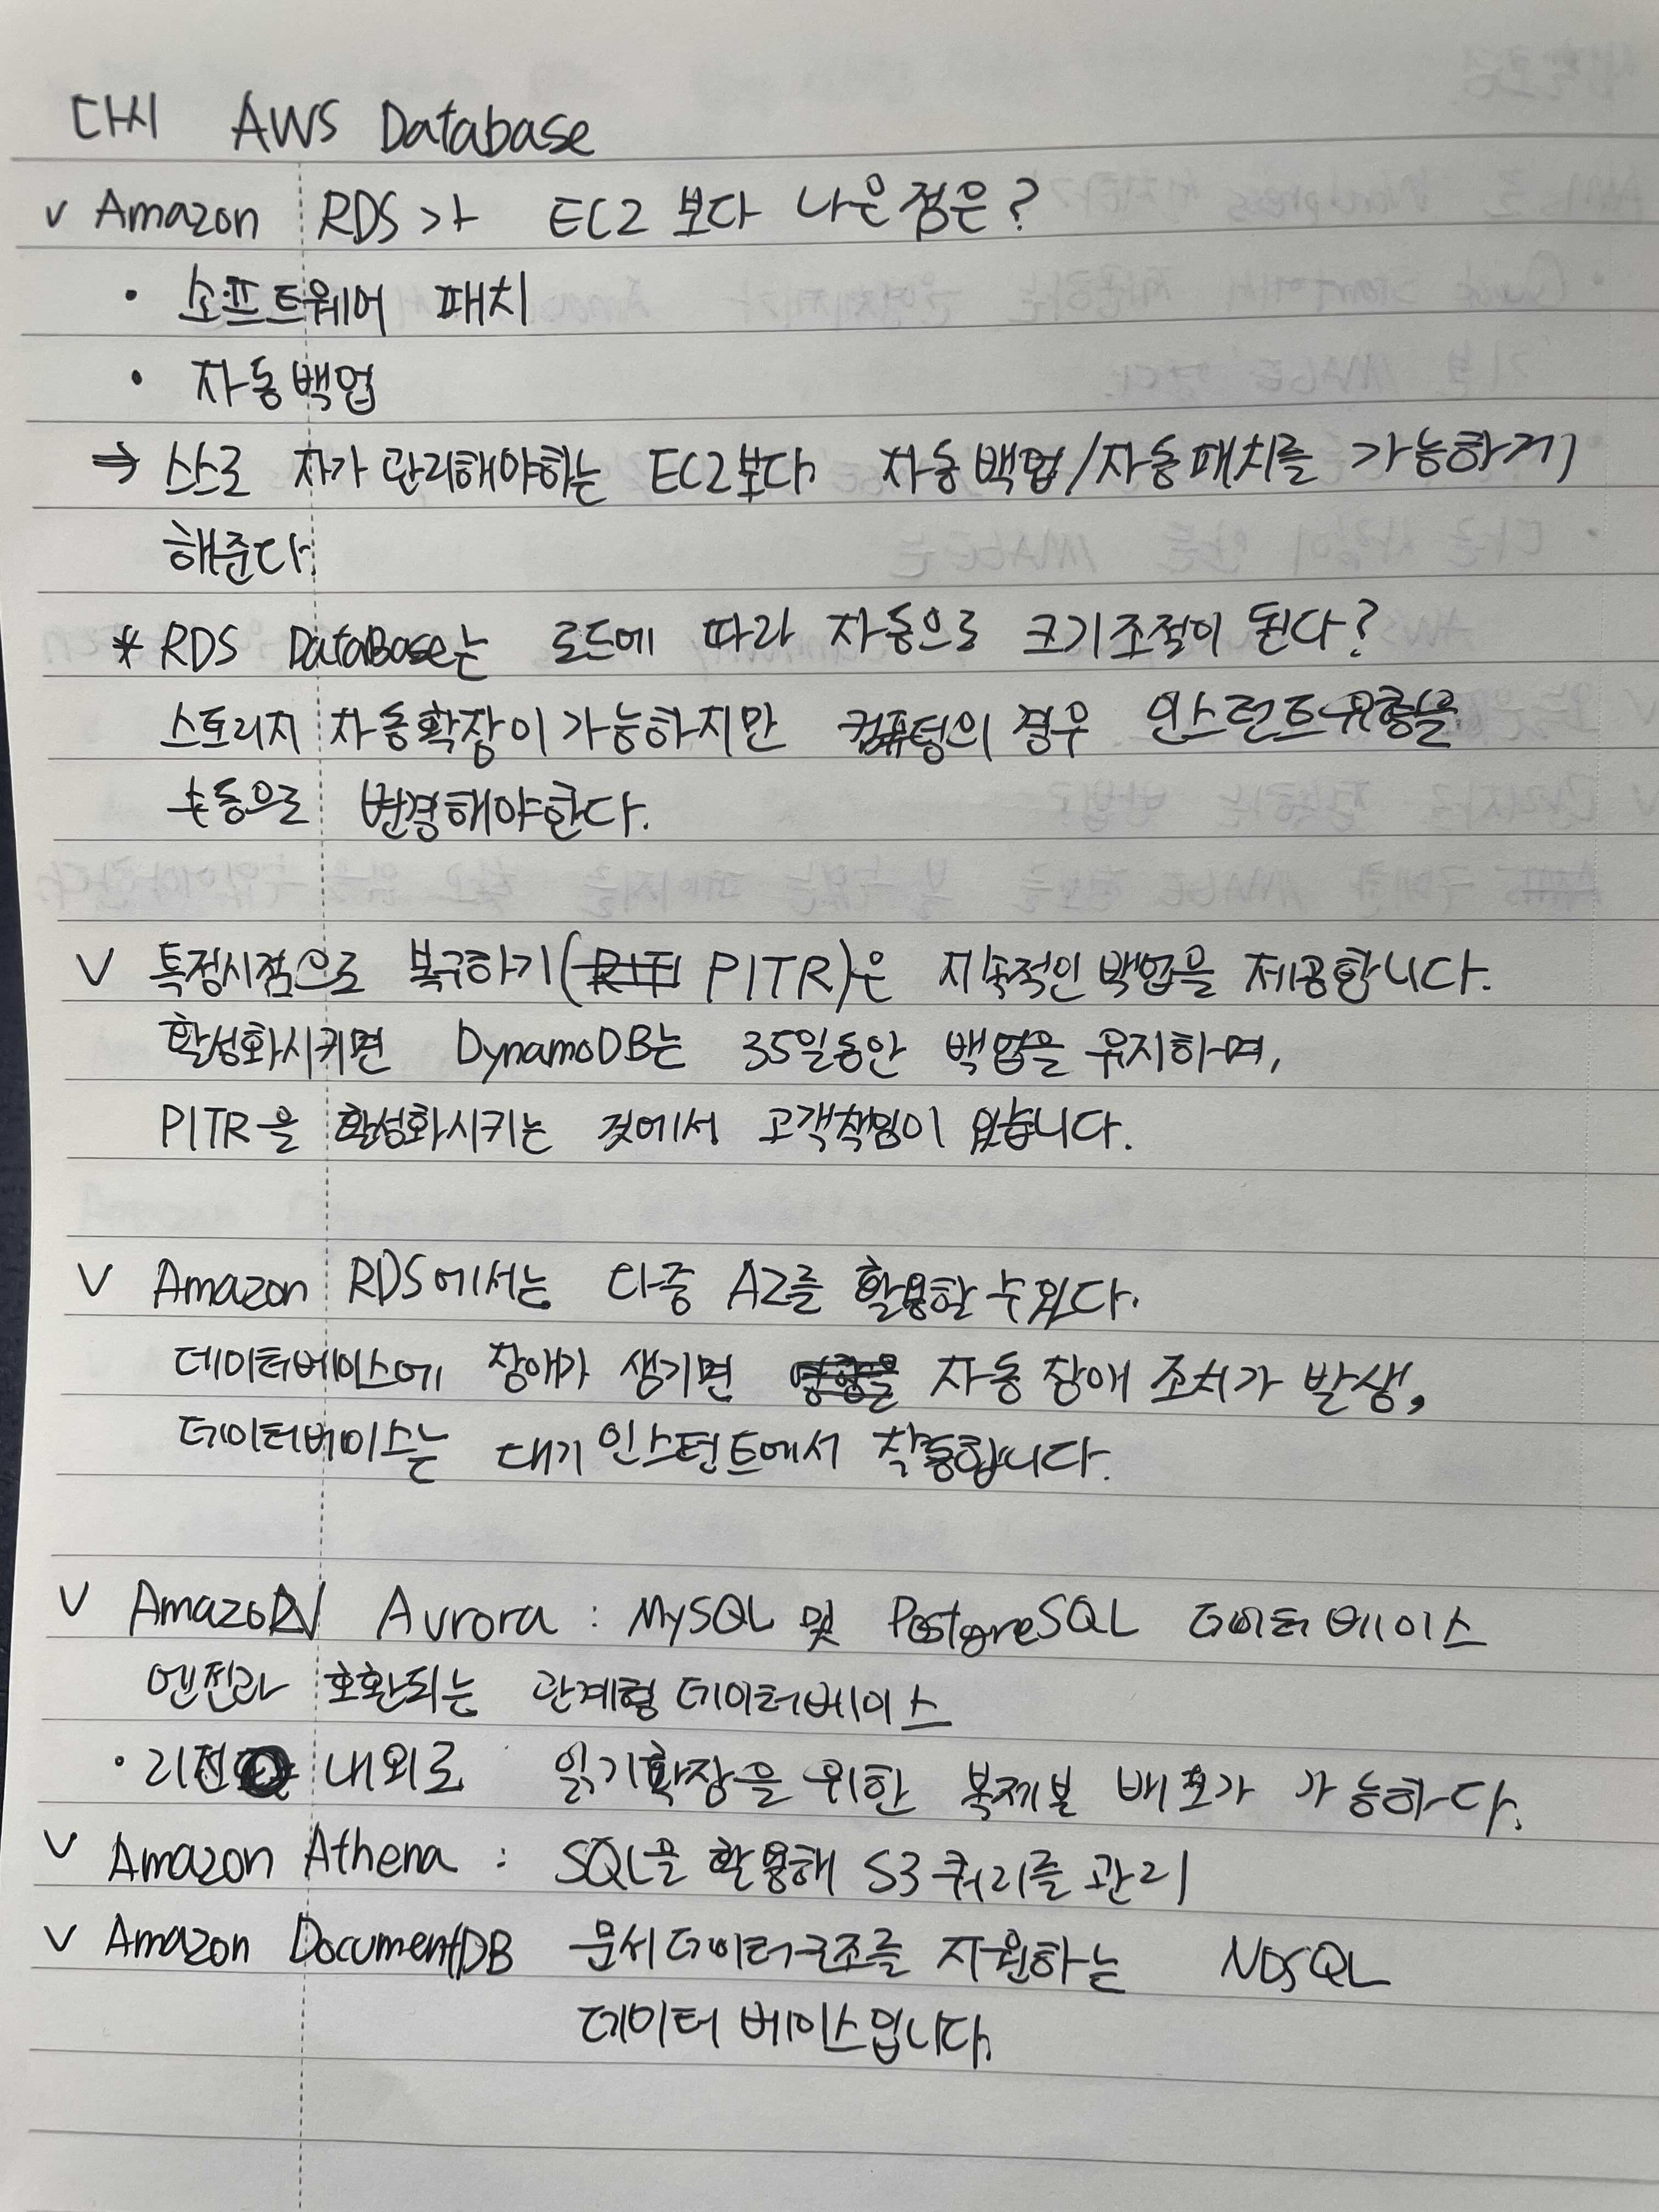 다시 AWS Database
v Amazon RDS가 EC2 보다 나은점은?
• 소프트웨어 패치
• 자동백업
⇒ 스스로 자가 관리해야하는 EC2보다 자동백업/자동패치를 가능하게
해준다.
* RDS DataBase는 로드에 따라 자동으로 크기조절이 된다?
스토리지 자동확장이 가능하지만 컴퓨팅의 경우 인스턴트유형을
수동으로 변경해야한다.
v 특정시점으로 복구하기( PITR)은 지속적인 백업을 제공합니다.
활성화시키면 DynamoDB는 35일동안 백업을 유지하며,
PITR을 활성화시키는 것에서 고객책임이 있습니다.
v Amazon RDS에서는 다중 AZ를 활용할 수 있다.
데이터베이스에 장애가 생기면 자동 장애 조치가 발생,
데이터베이스는 대기 인스턴트에서 작동합니다.
v AmazoN Aurora : MySQL 및 PostgreSQL 데이터베이스
엔진과 호환되는 관계형 데이터베이스
• 리전 내외로 읽기확장을 위한 복제본 배포가 가능하다.
v Amazon Athena : SQL을 활용해 S3 쿼리를 관리
v Amazon DocumentDB 문서데이터구조를 지원하는 NOSQL
데이터 베이스입니다.